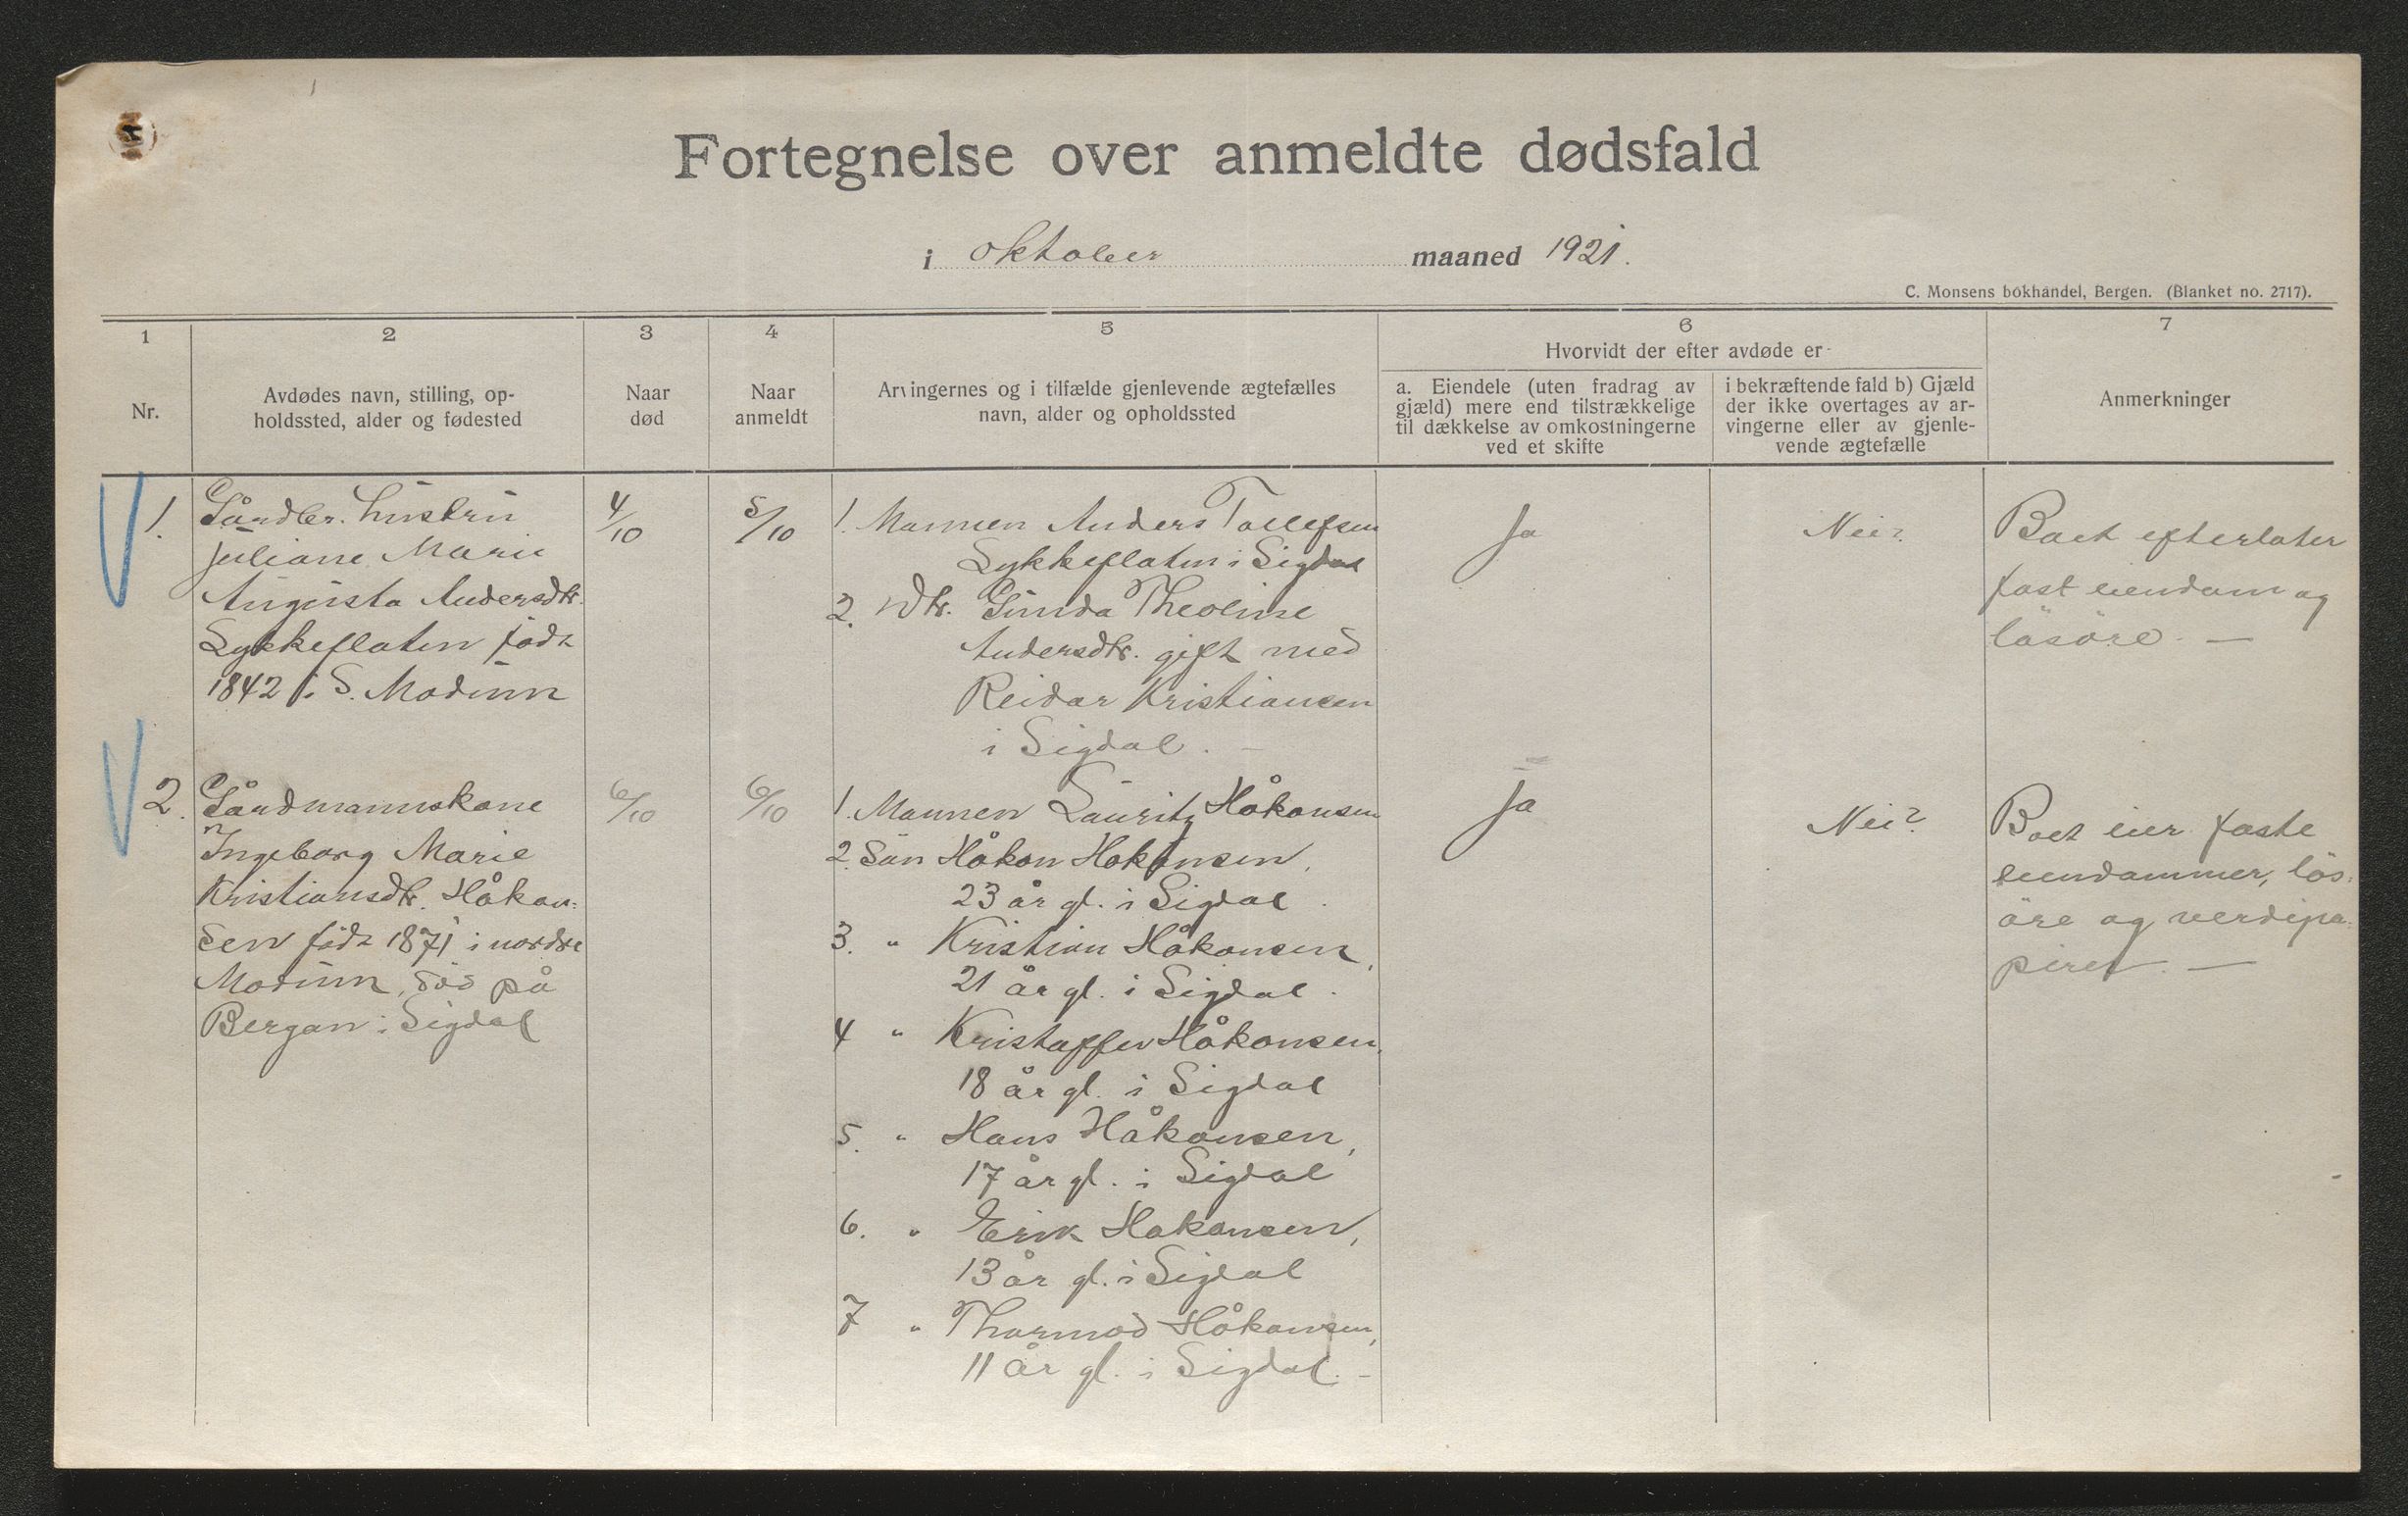 Fortegnelse over anmeldte dødsfald
i oktober maaned 1921.
C. Monsens bokhandel, Bergen. (Blanket no. 2717).
1
Nr.
2
Avdødes navn, stilling, op-
holdssted, alder og fødested
3
Naar
død
4
Naar
anmeldt
5
Arvingernes og i tilfælde gjenlevende ægtefælles
navn, alder og opholdssted
6
Hvorvidt der efter avdøde er
a. Eiendele (uten fradrag av
gjæld) mere end tilstrækkelige
til dækkelse av omkostningerne
ved et skifte
i bekræftende fald b) Gjæld
der ikke overtages av ar-
vingerne eller av gjenle-
vende ægtefælle
7
Anmerkninger
1.
Gårdbr. hustru
Juliane Marie
Augusta Andersdtr.
Lykkeflaten född
1842 i S. Modum
4/10
5/10
1. Mannen Anders Tollefsen
Lykkeflaten i Sigdal
2. Dtr. Gunda Theoline
Andersdtr. gift med
Reidar Kristiansen
i Sigdal. —
Ja
Nei?
Boet efterlater
fast eiendom og
lösöre. —
2.
Gårdmannskone
Ingeborg Marie
Kristiansdtr. Håkon=
sen född 1871 i nordre
Modum, död på
Bergan i Sigdal
6/10
6/10
1. Mannen Lauritz Håkonsen
2. Sön Håkon Hokonsen,
23 år gl. i Sigdal.
3. " Kristian Håkonsen,
21 år gl. i Sigdal.
4 " Kristoffer Håkonsen,
18 år gl. i Sigdal
5. " Hans Håkonsen,
17 år gl. i Sigdal
6. " Erik Hakonsen,
13 år gl. i Sigdal
7 " Thormod Håkonsen,
11 år gl. i Sigdal. -
Ja
Nei?
Boet eier faste
eiendommer, lös=
öre og verdipa=
pirer. —